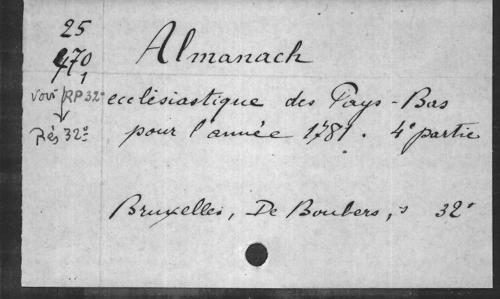 25
470
1
Almanach
Voir RP 32°
ecclésiastique des Pays-Bas
Rés 32°
pour l'année 1781. 4e partie
Bruxelles, De Boubers, s 32°